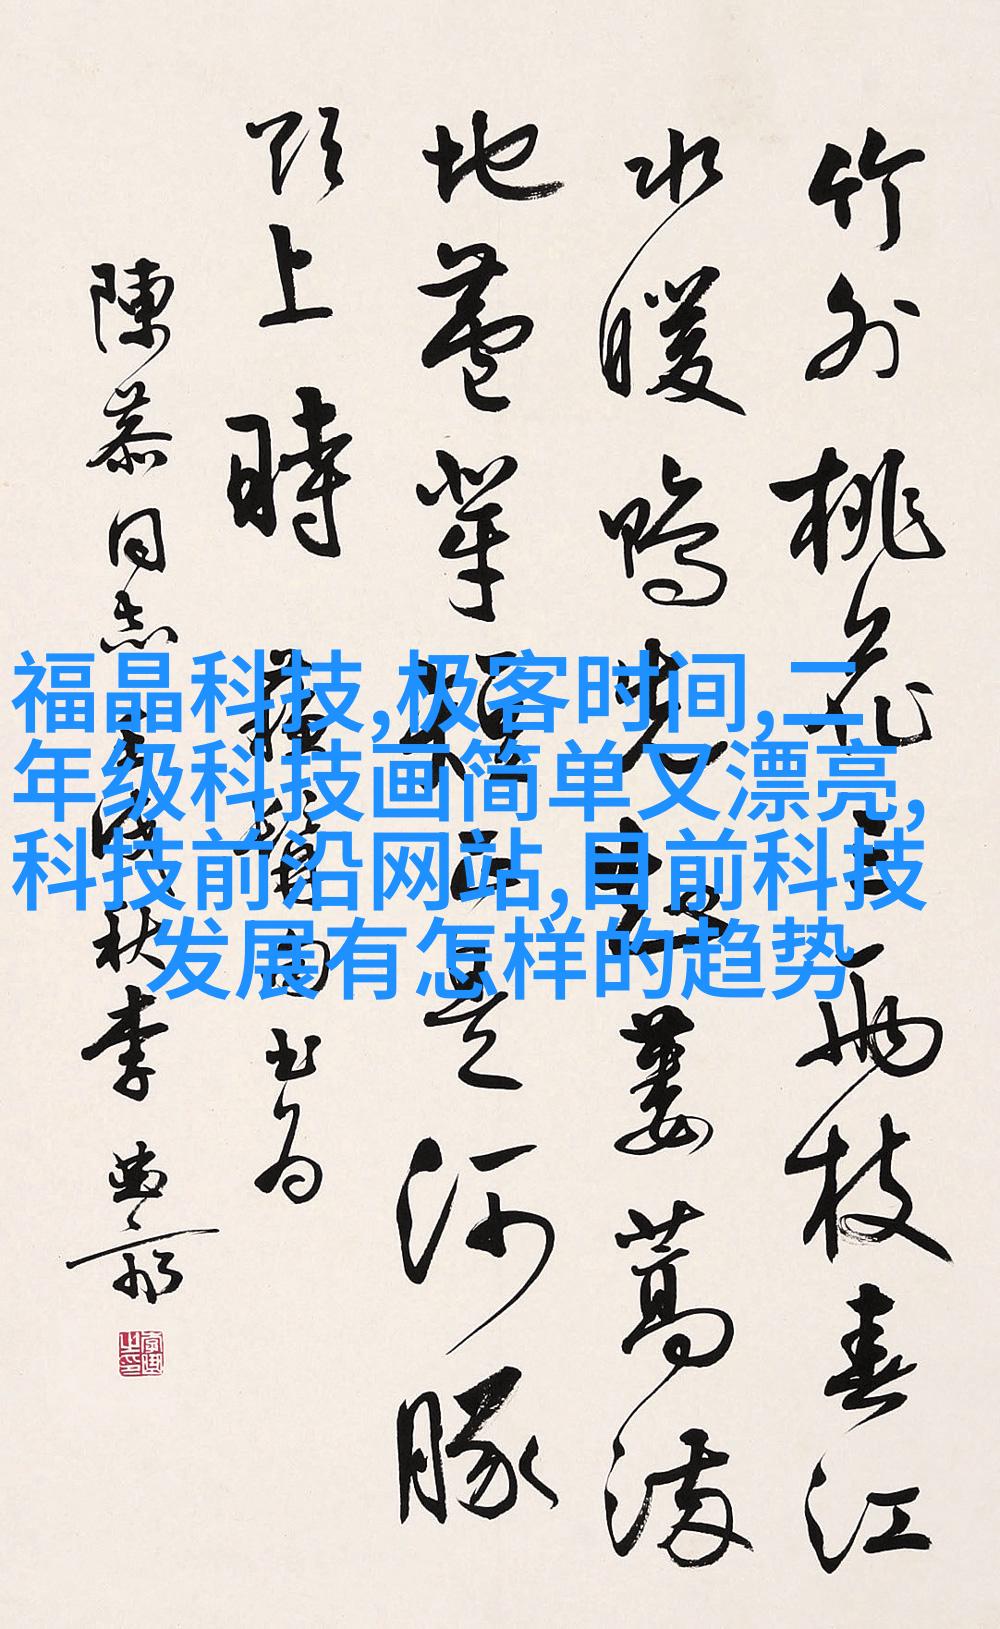 竹外桃花三兩枝春江
水暖鴨先知蔞蒿滿
地蘆芽短正是河豚
欲上時
蘇軾 句书为
陳 同志 秋李
福晶科技,极客时间,二
年级科技画简单又漂亮,
科技前沿网站,目前科技
发展有怎样的趋势